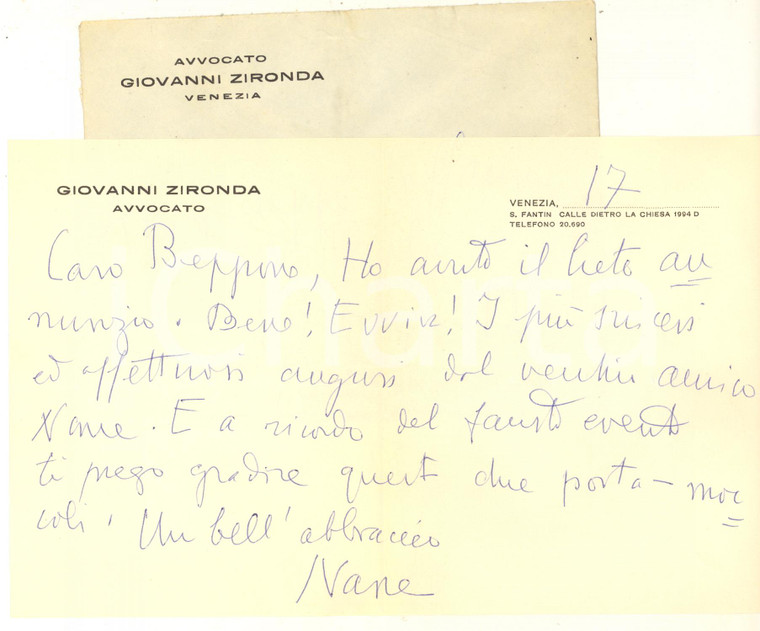 AVVOCATO
GIOVANNI ZIRONDA
VENEZIA
GIOVANNI ZIRONDA
AVVOCATO
VENEZIA, 17
S. FANTIN CALLE DIETRO LA CHIESA 1994 D
TELEFONO 20.690
Caro Beppino, Ho avuto il lieto an
nunzio. Bene! Evviva! I più sinceri
ed affettuosi auguri dal vecchio amico
Nane. E a ricordo del fausto evento
ti prego gradire questi due porta-moc
coli. Un bell'abbraccio
Nane